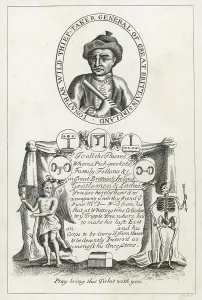 JONATHAN WILD THIEF-TAKER GENERAL OF GREAT BRITAIN & IRELAND
To all the Thieves
Whores, Pick-pockets
Family Fellons &c
in Great Brittain & Ireland
Gentlemen & Ladies
You are hereby desir'd to
accompany yr worthy friend ye
Pious Mr. J— W—d from his
Seat at Whittingtons Colledge
to ye Tripple Tree, where he's
to make his last Exit
on and his
Corps to be Carry'd from thence
to be decently Interr'd a-
mongst his Ancestors.
Pray bring this Ticket with you